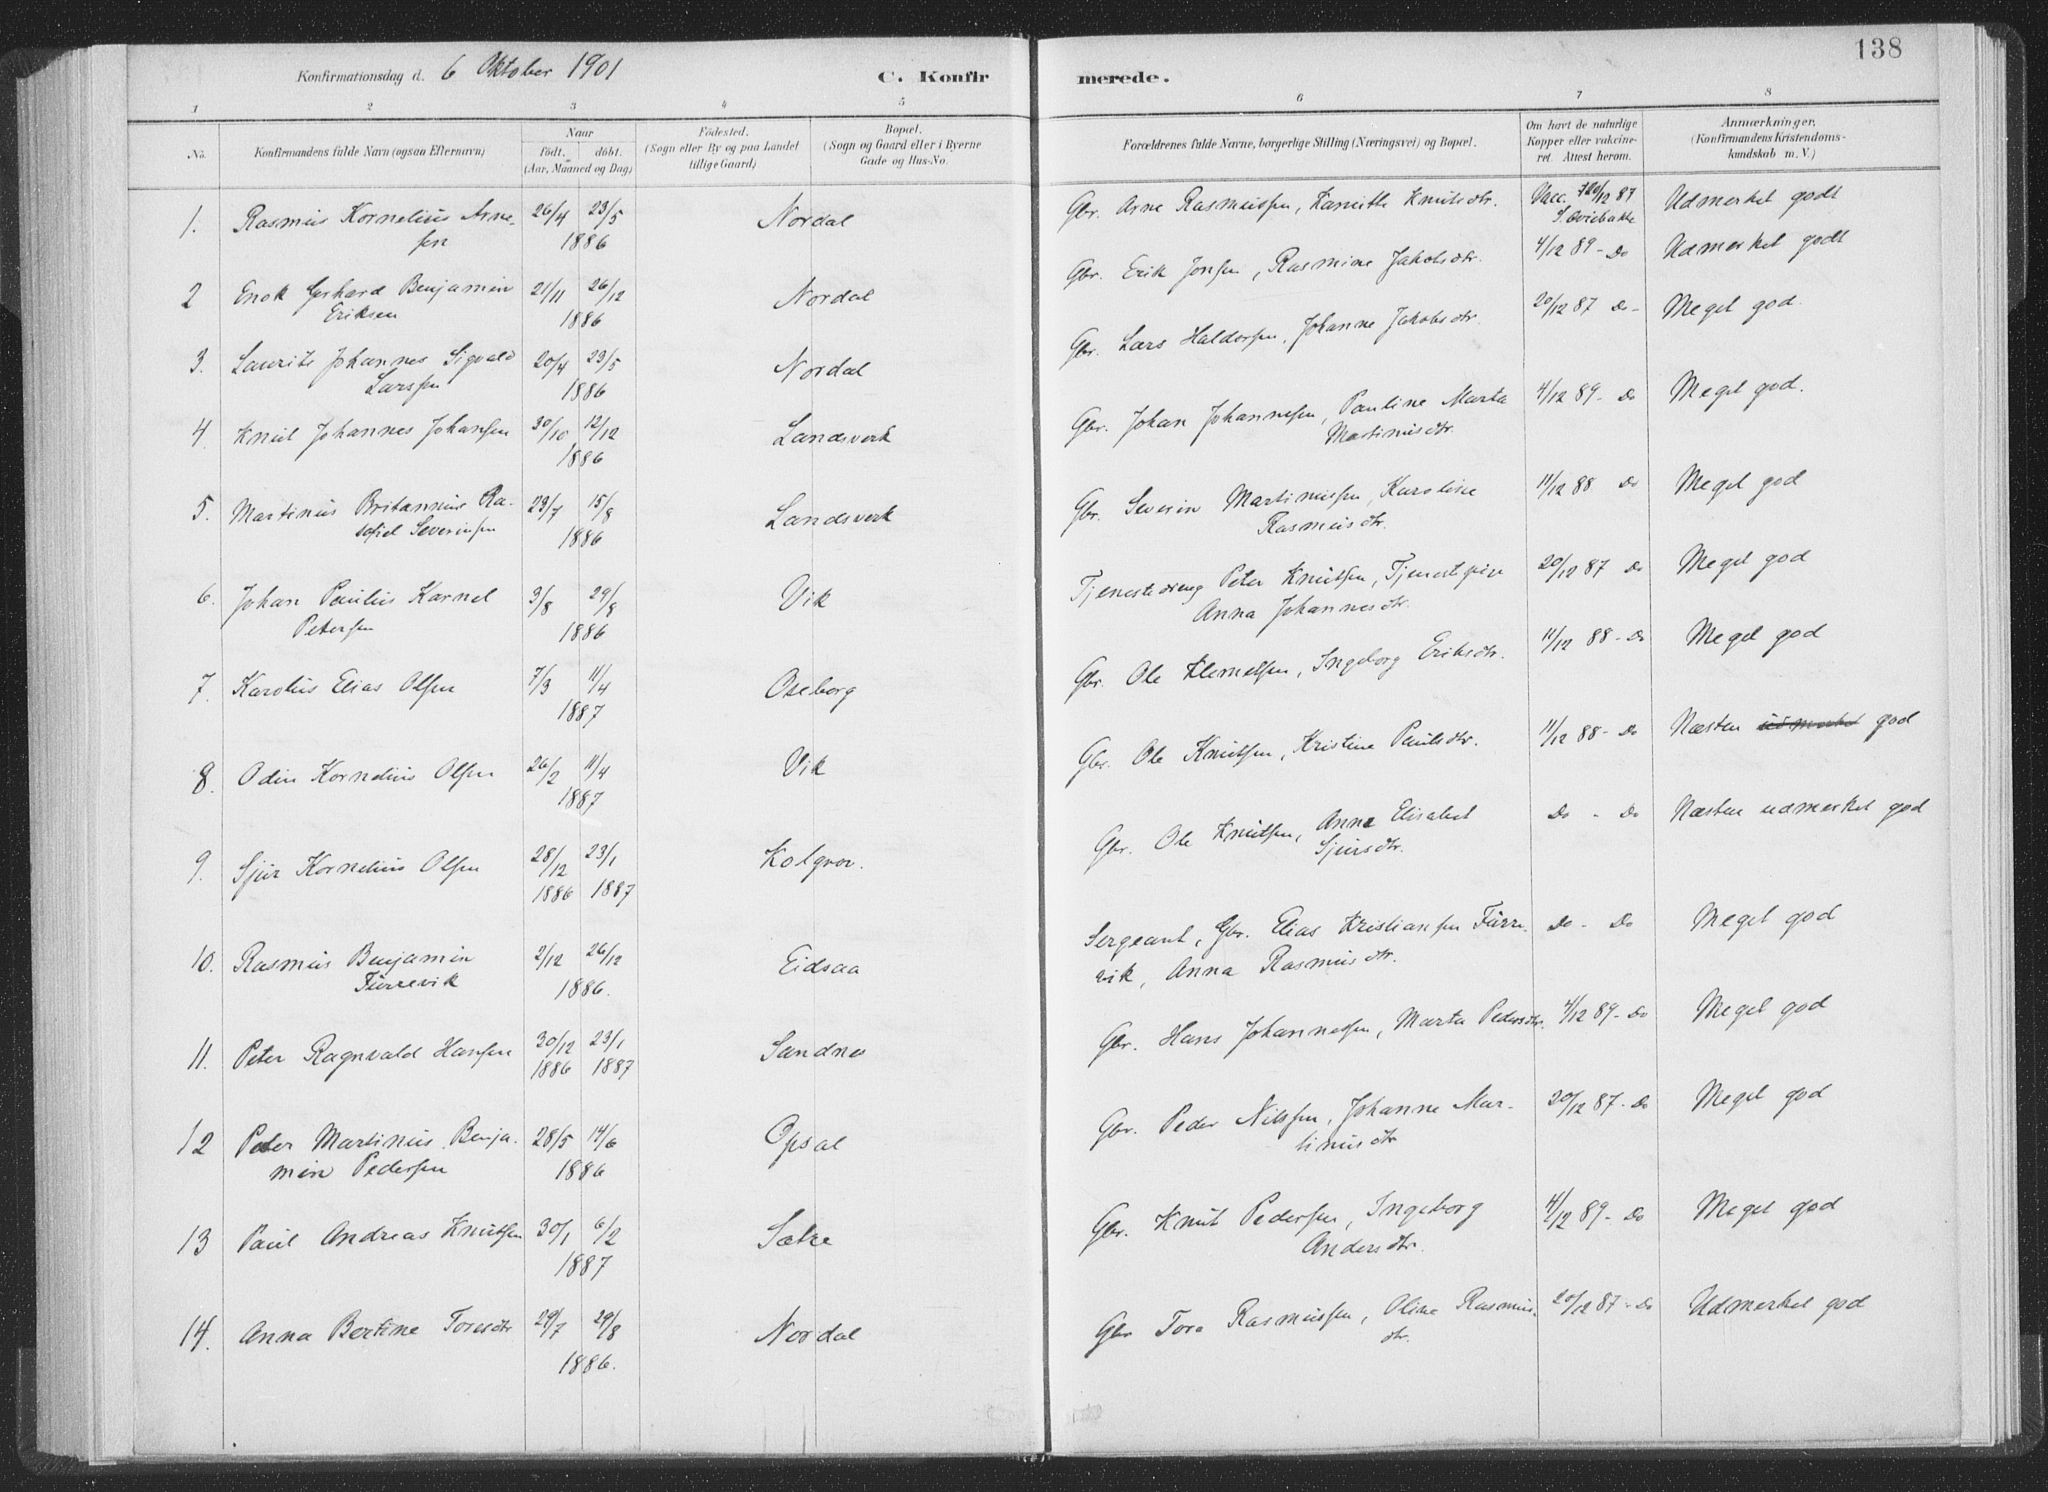 138
Konfirmationsdag d. 6 Oktober 1901
C. Konfirmerede.
1 2 3 4 5 6 7 8
No. Konfirmandens fulde Navn (ogsaa Efternavn)
Naar født. døbt. (Aar, Maaned og Dag)
Fødested. (Sogn eller By og paa Landet tillige Gaard)
Bopæl. (Sogn og Gaard eller i Byerne Gade og Hus-No.
Forældrenes fulde Navne, borgerlige Stilling (Næringsvei) og Bopæl.
Om havt de naturlige Kopper eller vakcineret. Attest herom.
Anmærkninger. (Konfirmandens Kristendomskundskab m. V.)
1. Rasmus Kornelius Arnesen 26/4 23/5 1886 Nordal Gbr. Arne Rasmussen, Kanutte Knutsdtr. Vacc. 20/12 87 Udmerket godt
2 Enok Gerhard Benjamin Eriksen 21/11 26/12 1886 Nordal Gbr. Erik Jonsen, Rasmine Jakobsdtr. 4/12 89 - Do Udmerket godt
3. Laurits Johannes Sigvald Larssen 20/4 23/5 1886 Nordal Gbr. Lars Haldorsen, Johanne Jakobsdtr. 20/12 87 Do - Meget god.
4. Knut Johannes Johansen 30/10 12/12 1886 Landsverk Gbr. Johan Johannessen, Pauline Marta Martinusdtr. 4/12 89 - Do Meget god.
5. Martinus Britannus Rafael Severinsen 23/7 15/8 1886 Landsverk Gbr. Severin Martinussen, Karoline Rasmusdtr. 11/12 88 Do Meget god
6. Johan Paulus Karnel Petersen 3/8 29/8 1886 Vik Tjenestedreng Peter Knutsen, Tjenestpige Anna Johannesdtr. 20/12 87 Do Meget god
7. Karolus Elias Olsen 7/3 11/4 1887 Oseborg Gbr. Ole Klemetsen, Ingeborg Eriksdtr. 11/12 88 - Do Meget god
8. Odin Kornelius Olsen 26/2 11/4 1887 Vik Gbr. Ole Knutsen, Kristine Paulsdtr. 11/12 88 - Do Næsten udmerket god
9. Sjur Kornelius Olsen 28/12 1886 23/1 1887 Kolgrov. Gbr. Ole Knutsen, Anne Elisabet Sjursdtr. Do - Do Næsten udmerket god
10. Rasmus Benjamin Furrevik 2/12 26/12 1886. Eidsaa Sergeant, Gbr. Elias Kristiansen Furrevik, Anna Rasmusdtr. Do - Do Meget god
11. Peter Ragnvald Hansen 30/12 1886 23/1 1887 Sandnes Gbr. Hans Johannessen, Marta Pedersdtr. 4/12 89 - Do Meget god
12 Peter Martinus Benjamin Pedersen 28/5 14/6 1886 Opsal Gbr. Peder Nilssen, Johanne Martinusdtr 20/12 87 - Do Meget god
13 Paul Andreas Knutsen 30/1 6/2 1887 Sætre Gbr. Knut Pedersen, Ingeborg Andersdtr. 4/12 89 - Do Meget god
14. Anna Bertine Toresdtr 29/7 29/8 1886. Nordal Gbr Tore Rasmussen, Oline Rasmusdtr. 20/12 87 - Do Udmerket god